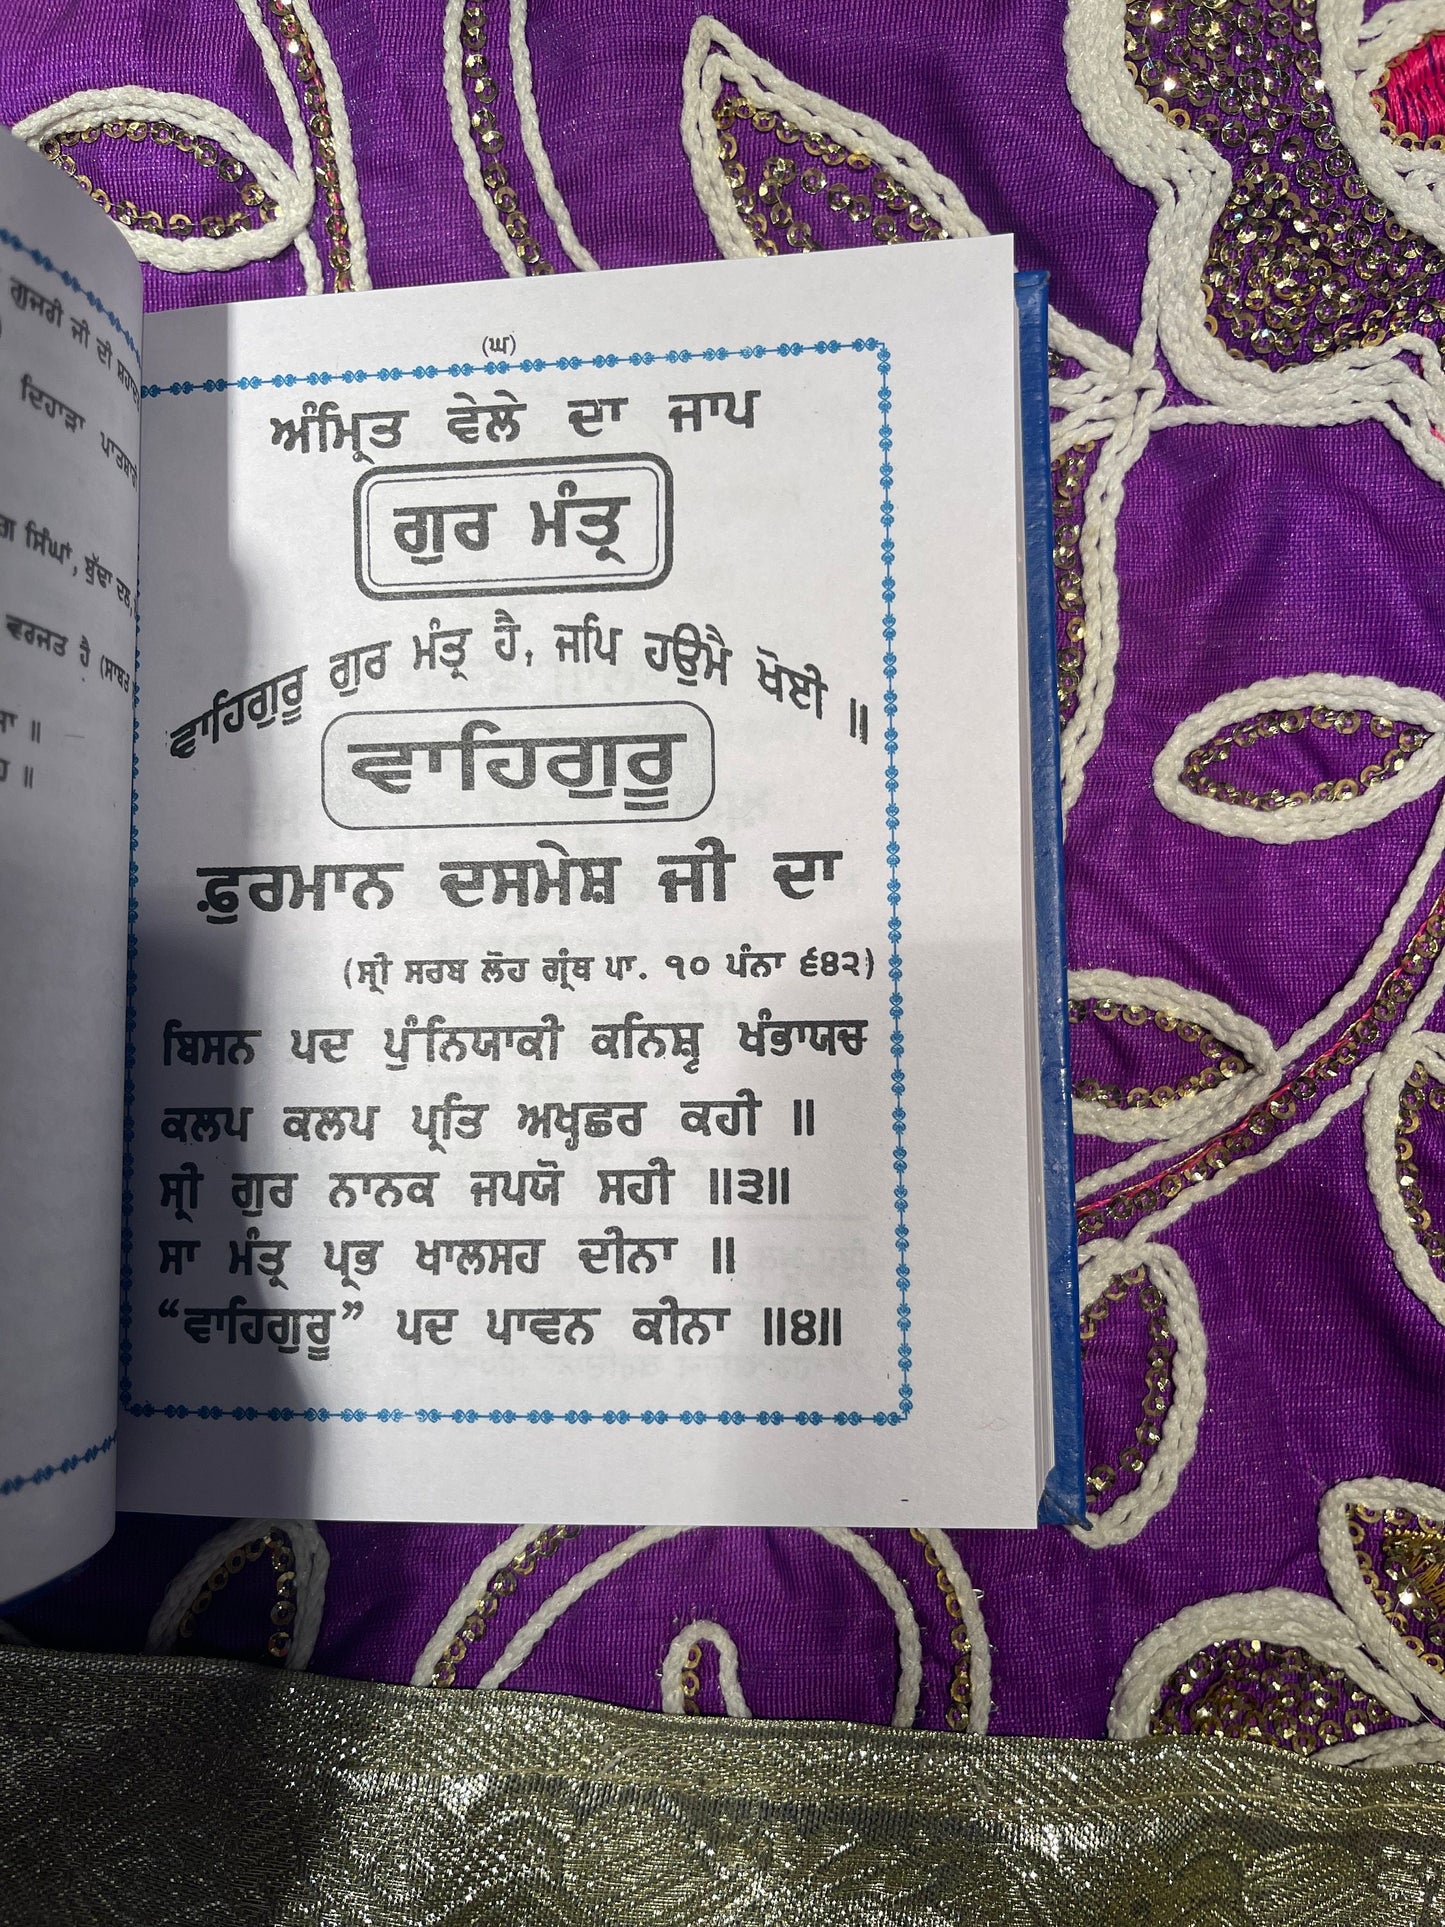 ਗੁਜਰੀ ਜੀ ਦੀ
ਦਿਹਾੜਾ
ਸਿੰਘਾਂ, ਬੁੱਢਾ ਦਲ,
ਵਰਜਤ ਹੈ (ਸਾਬਤ
॥
॥
(ਘ)
ਅੰਮ੍ਰਿਤ ਵੇਲੇ ਦਾ ਜਾਪ
ਗੁਰ ਮੰਤ੍ਰ
ਵਾਹਿਗੁਰੂ ਗੁਰ ਮੰਤ੍ਰ ਹੈ, ਜਪਿ ਹਉਮੈ ਖੋਈ ॥
ਵਾਹਿਗੁਰੂ
ਫ਼ੁਰਮਾਨ ਦਸਮੇਸ਼ ਜੀ ਦਾ
(ਸ੍ਰੀ ਸਰਬ ਲੋਹ ਗ੍ਰੰਥ ਪਾ. ੧੦ ਪੰਨਾ ੬੪੨)
ਬਿਸਨ ਪਦ ਪੁੰਨਿਯਾਕੀ ਕਨਿਸ਼੍ਰ ਖੰਭਾਯਚ
ਕਲਪ ਕਲਪ ਪ੍ਰਤਿ ਅਖ੍ਹਛਰ ਕਹੀ ॥
ਸ੍ਰੀ ਗੁਰ ਨਾਨਕ ਜਪਯੋ ਸਹੀ ॥੩॥
ਸਾ ਮੰਤ੍ਰ ਪ੍ਰਭ ਖਾਲਸਹ ਦੀਨਾ ॥
“ਵਾਹਿਗੁਰੂ” ਪਦ ਪਾਵਨ ਕੀਨਾ ॥੪॥